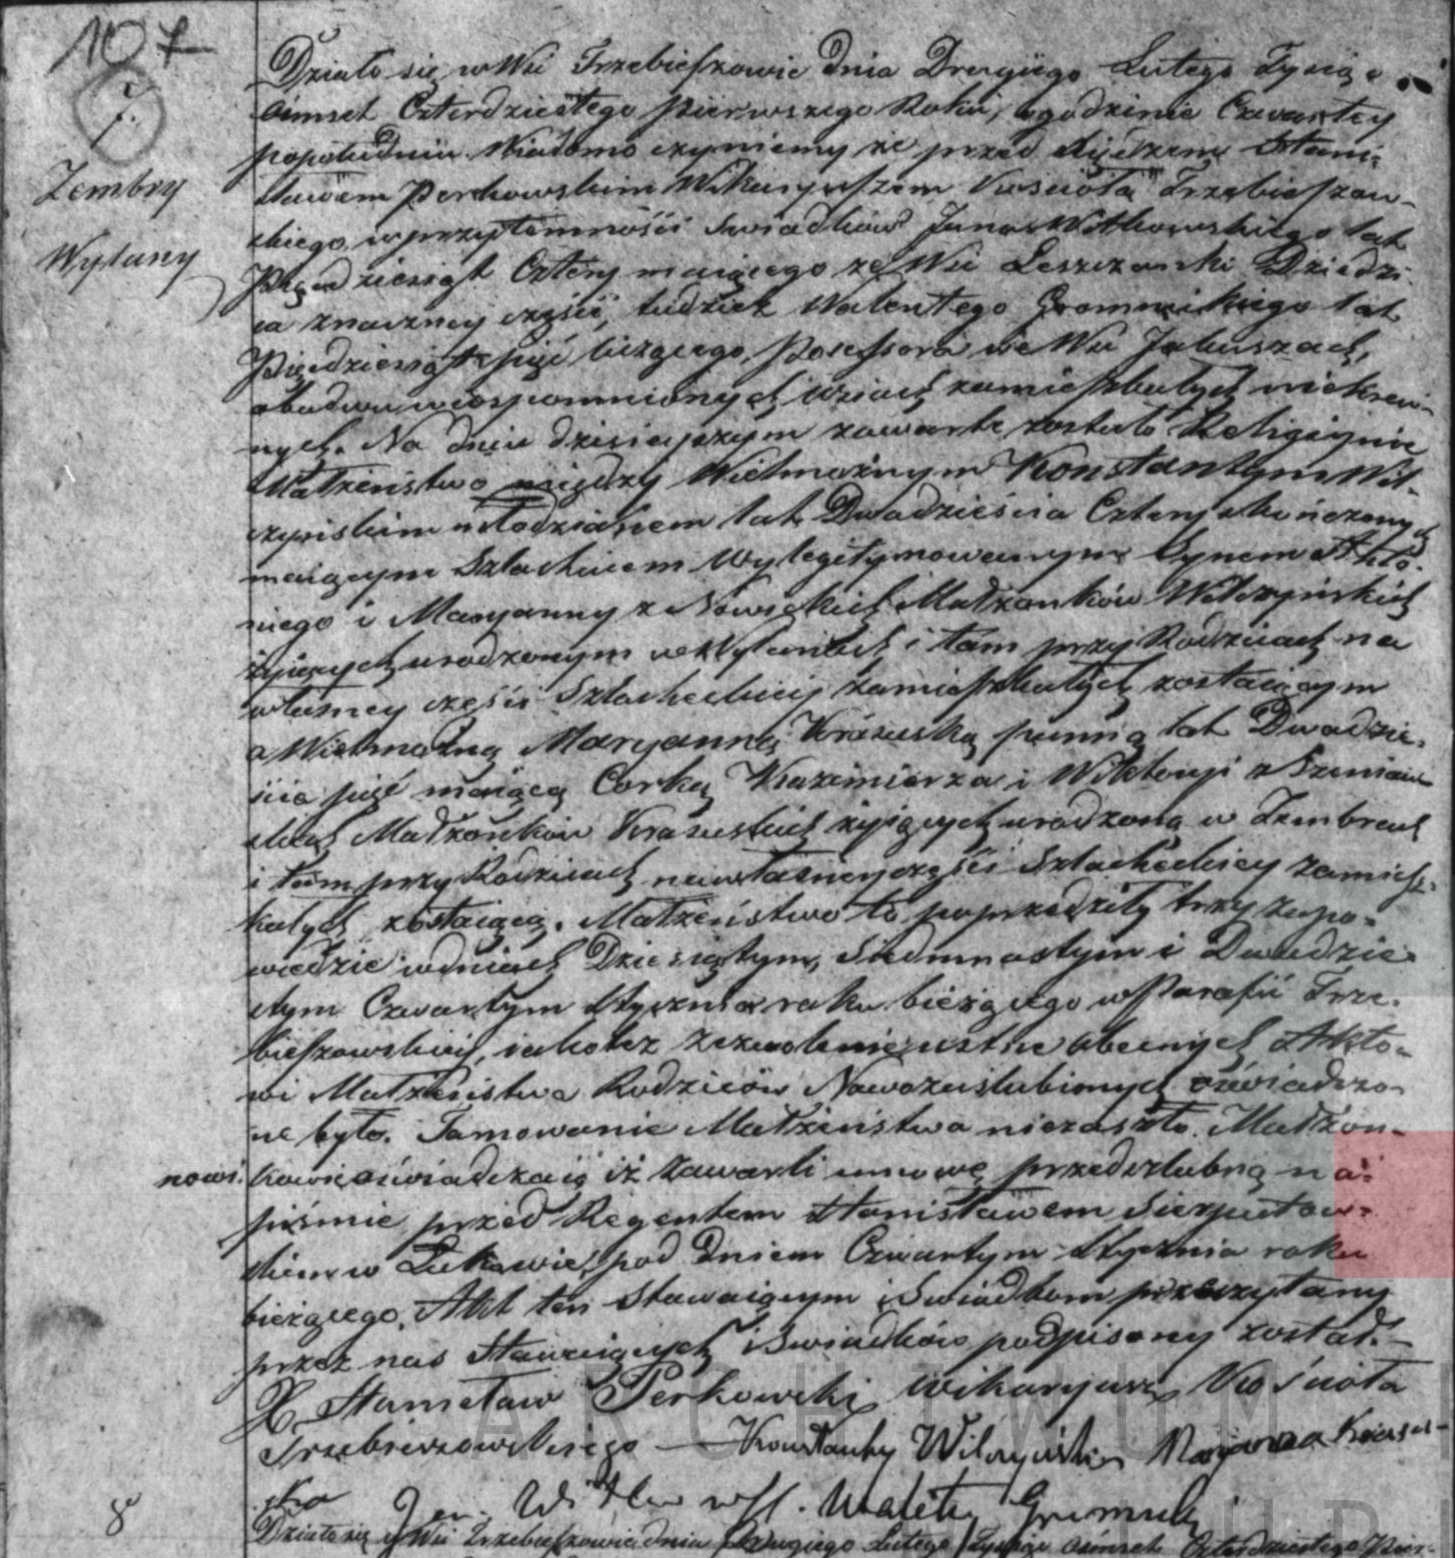 107
7.
Zembry
Wylany
Działo się w Wsi Trzebieszowie Dnia Drugiego Lutego Tysiąc
ośmset Czterdziestego Pierwszego Roku, o godzinie Czwartey
popołudniu. Wiadomo czyniemy że przed Xiędzem Stani-
sławem Perkowskim Wikaryuszem Kościoła Trzebieszow-
skiego, w przytomności Swiadków Jana Witkowskiego lat
Pięćdziesiąt Cztery maiącego ze Wsi Leszczanki Dziedzi-
ca znaczney części, tudzież Walentego Gromnickiego lat
Pięćdziesiąt pięć liczącego, Possessora we Wsi Jakuszach,
obudwu wespomnionych Wsiach zamieszkałych niekrew-
nych. Na dniu dzisieyszym zawarte zostało Religijnie
Małżeństwo między Wielmożnym Konstantym Wil-
czyńskim młodzianem lat Dwadzieścia Cztery skończonych
maiącym Szlachcicem Wylegitymowanym Synem Anto-
niego i Maryanny z Małżonków Wilczyńskich
żyiących urodzonym we Wylanach i tam przy Rodzicach na
własney części Szlacheckiey zamieszkałych zostaiącym
a Wielmożną Maryanną Krasuską panną lat Dwadzie-
ścia pięć maiącą Corką Kazimierza i Wiktoryi z Szaniaw
skich Małżonków Krasuskich żyiących urodzoną w Zembrach
i tam przy Rodzicach na własney części Szlacheckiey zamiesz-
kałych zostaiącą. Małżeństwo to poprzedziły trzy zapo-
wiedzie w dniach Dziesiątym, Siedmnastym i Dwudzie-
stym Czwartym Stycznia roku bieżącego w Parafii Trze-
bieszowskiey, iakoteż zezwolenie ustne obecnych Akto-
wi Małżeństwa Rodziców Nowozaślubionych oświadczo-
ne było. Tamowanie Małżeństwa niezaszło. Małżon-
nowi. kowie oświadczaią iż zawarli umowę przedślubną na
piśmie przed Regentem Stanisławem
skim w Łukowie, pod Dniem Czwartym Stycznia roku
bieżącego. Akt ten Stawaiącym i Swiadkom przeczytany
przez nas Stawaiących i Swiadków podpisany został.
X Stanisław Perkowski Wikaryusz Kościoła
Trzebieszowskiego — Konstanty Wilczyński Maryanna Krasu-
ska Jan Walenty
8
Działo się w Wsi Trzebieszowie dnia Drugiego Lutego Tysiąc ośmset Czterdziestego Pier-
ARCHIWUM